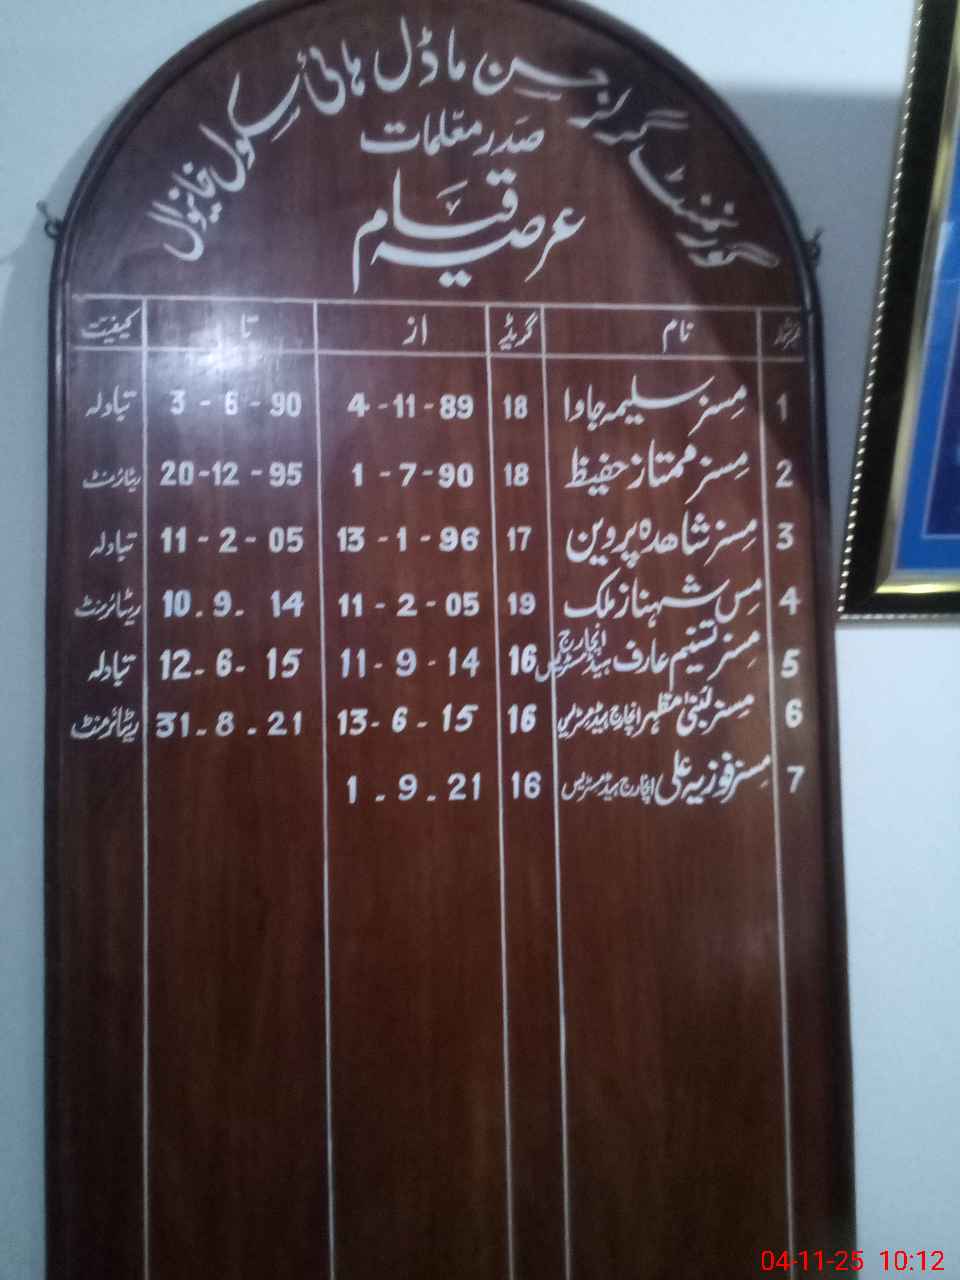 گورنمنٹ گرلز حسن ماڈل ہائی سکول خانیوال
صدر معلمات
عرصہ قیام
نمبر شمار نام گریڈ از تا کیفیت
1 مسز سلیمہ جاوا 18 4-11-89 3-6-90 تبادلہ
2 مسز ممتاز حفیظ 18 1-7-90 20-12-95 ریٹائرمنٹ
3 مسز شاھدہ پروین 17 13-1-96 11-2-05 تبادلہ
4 مس شہناز ملک 19 11-2-05 10.9.14 ریٹائرمنٹ
5 مسز تسنیم عارف انچارج ہیڈمسٹریس 16 11-9-14 12-6-15 تبادلہ
6 مسز لبنیٰ مظہر انچارج ہیڈمسٹریس 16 13-6-15 31-8.21 ریٹائرمنٹ
7 مسز فوزیہ علی انچارج ہیڈمسٹریس 16 1-9-21
04-11-25 10:12